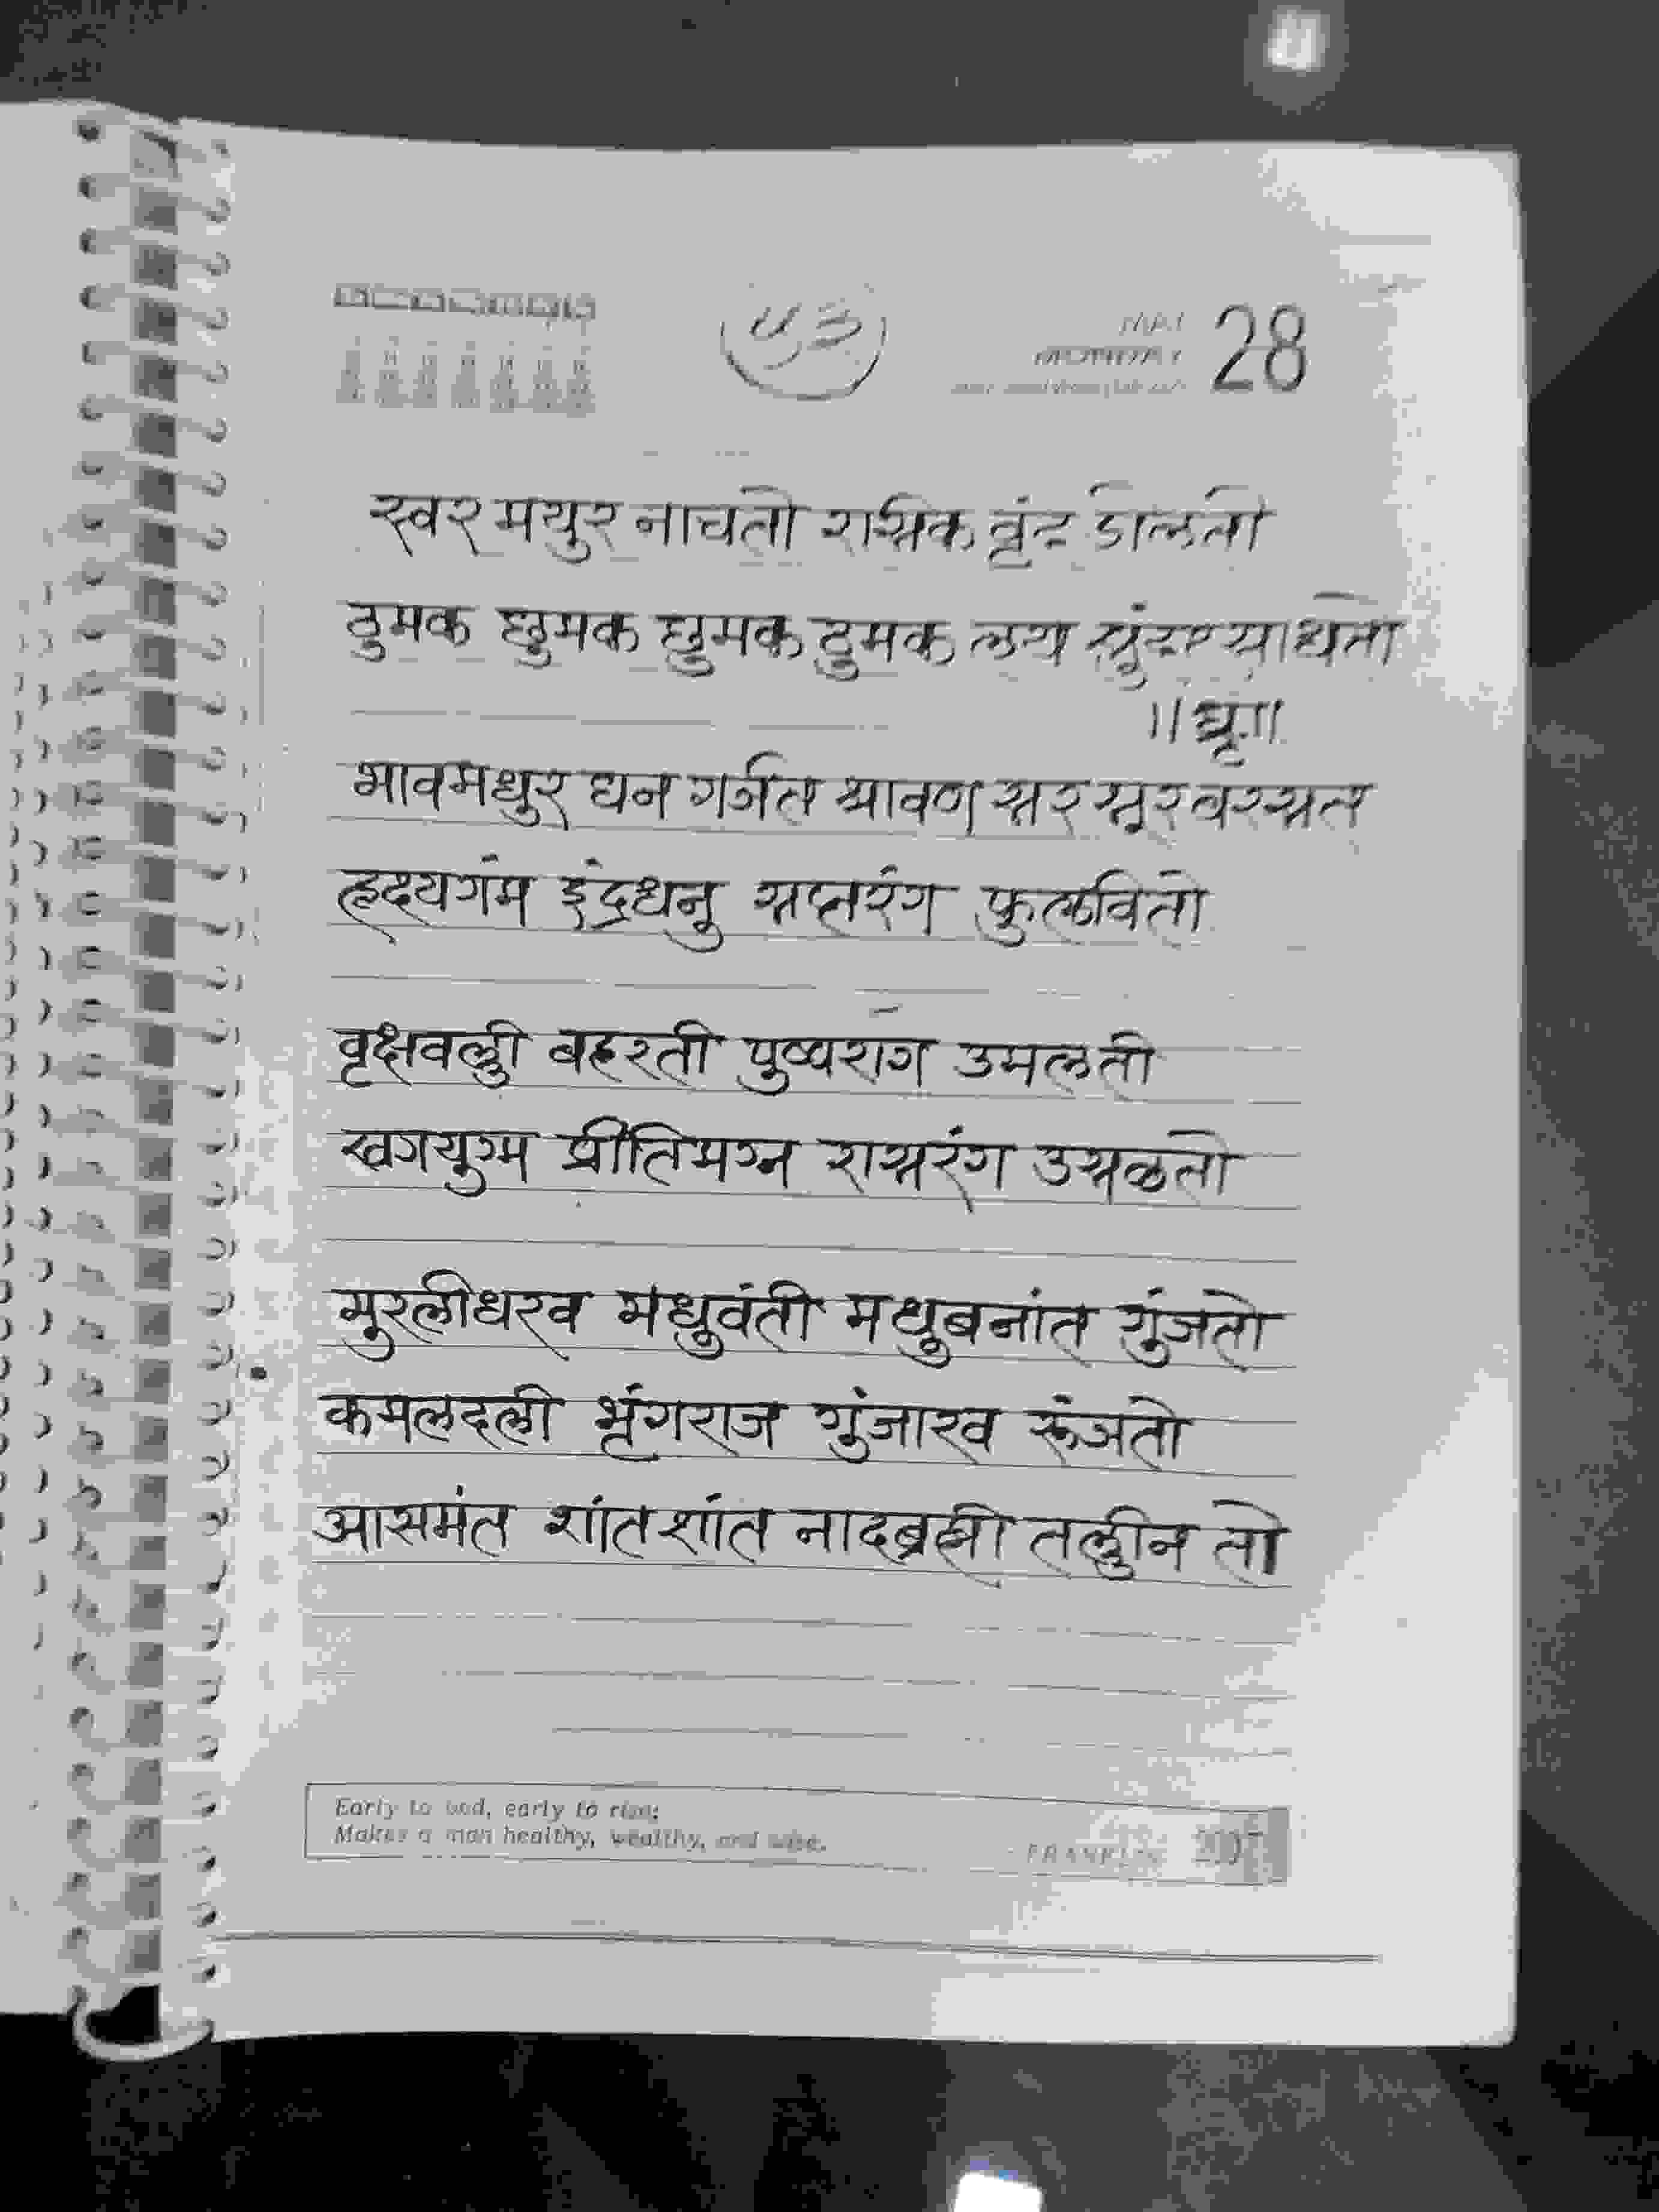 ५३
MAY
MONDAY 28
स्वर मयुर नाचतो रासिक वृंद डोलतो
ठुमक छुमक छुमक ठुमक लय सुंदर साधतो
॥धृ॥
भावमधुर घन गर्जत श्रावण सर सूर बरसत
हृदयगंम इंद्रधनु सप्तरंग फुलवितो
वृक्षवल्ली बहरती पुष्पराग उमलती
खगयुग्म प्रीतिमग्न रासरंग उसळतो
मुरलीधरव मधुवंती मधुबनांत गुंजतो
कमलदली भृंगराज गुंजारव रूंजतो
आसमंत शांत शांत नादब्रह्मी तल्लीन तो
Early to bed, early to rise;
Makes a man healthy, wealthy, and wise.
FRANKLIN